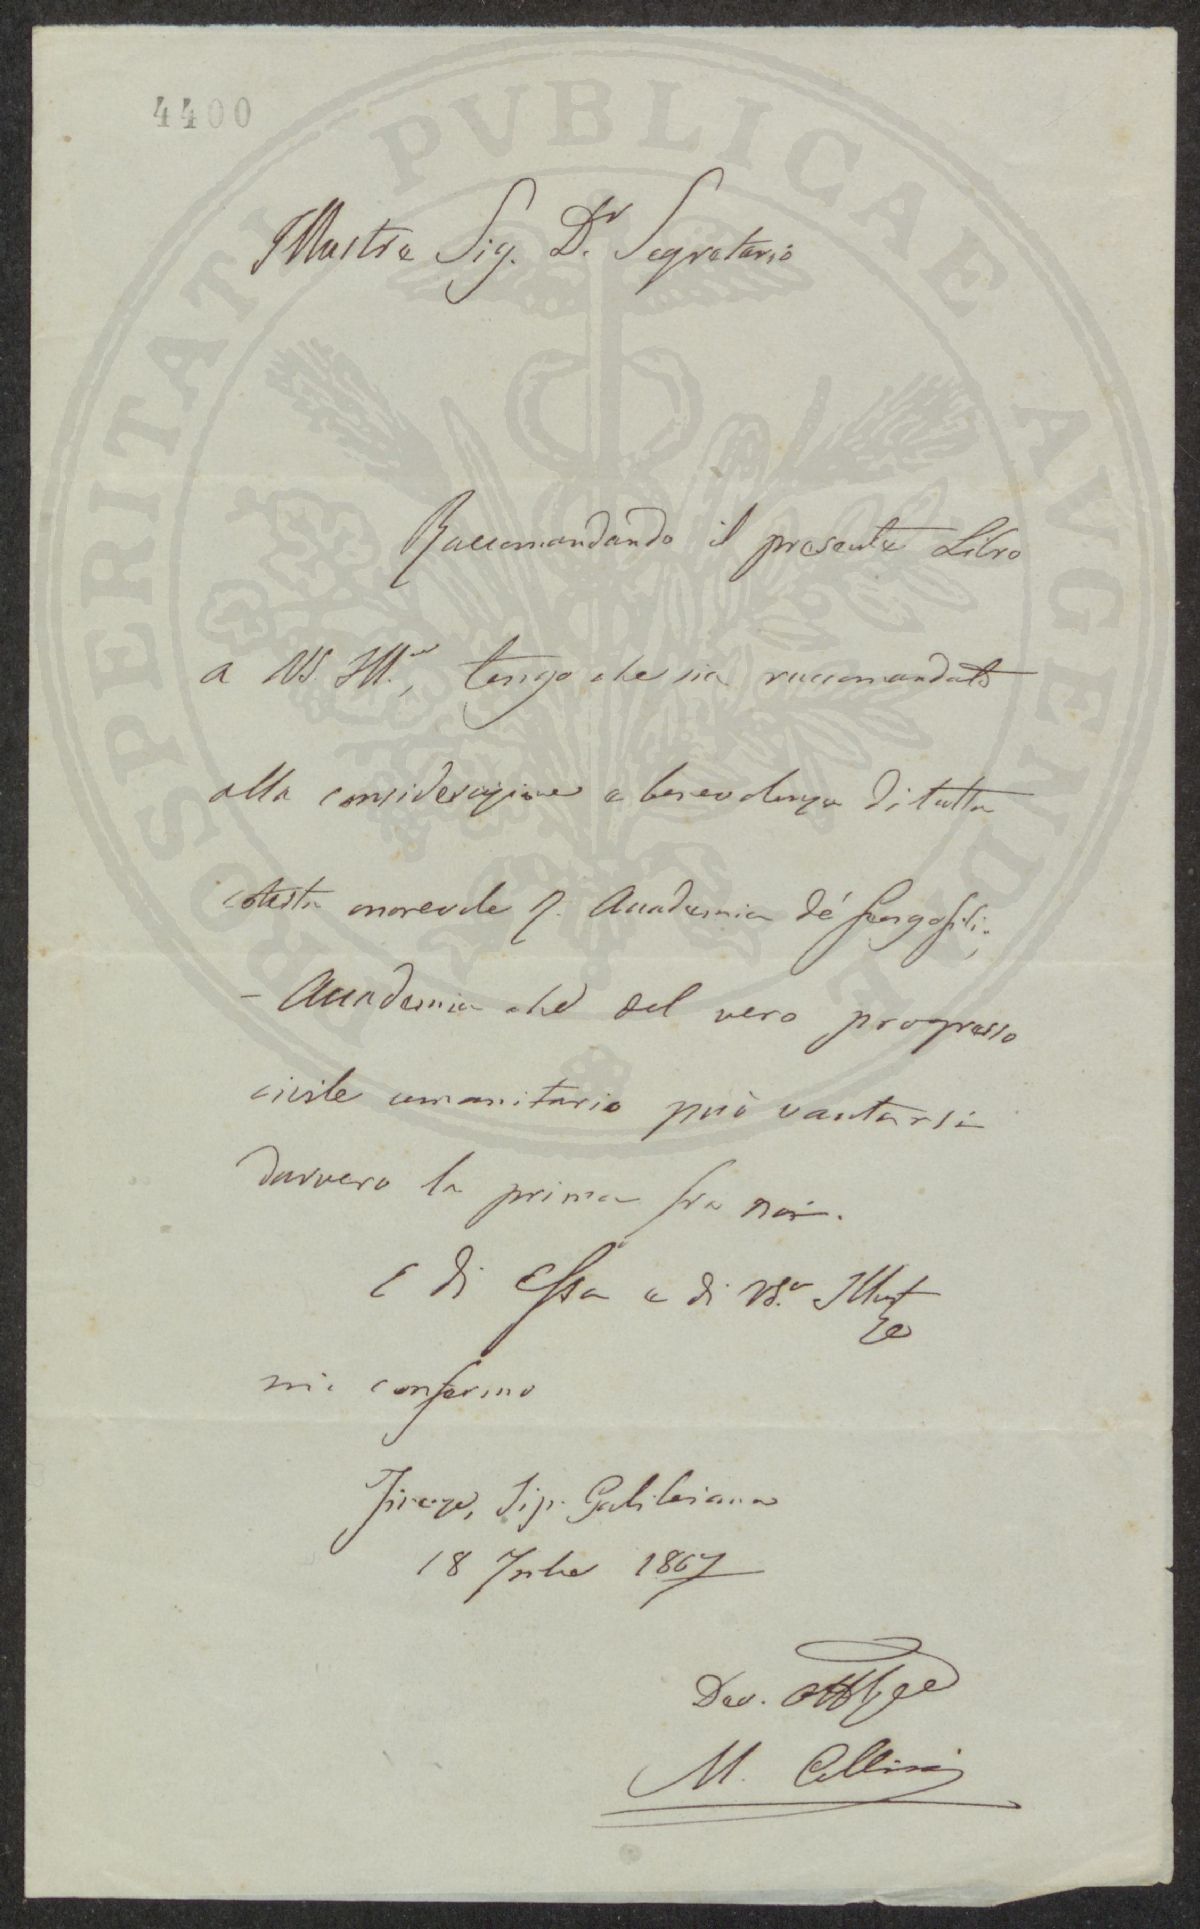 4400
PROSPERITATI PVBLICAE AVGENDAE
Illustre Sig. Dr. Segretario
Raccomandando il presente Libro
a VS. Ill.a, tengo che sia raccomandato
alla considerazione e benevolenza di tutta
cotesta onorevole R. Accademia de' Georgofili;
- Accademia che del vero progresso
civile umanitario può vantarsi
davvero la prima fra noi.
E di Essa e di VS.a Illustre
mi confermo
Firenze, Tip. Galileiana
18 1867
Dev.
M. Cellini